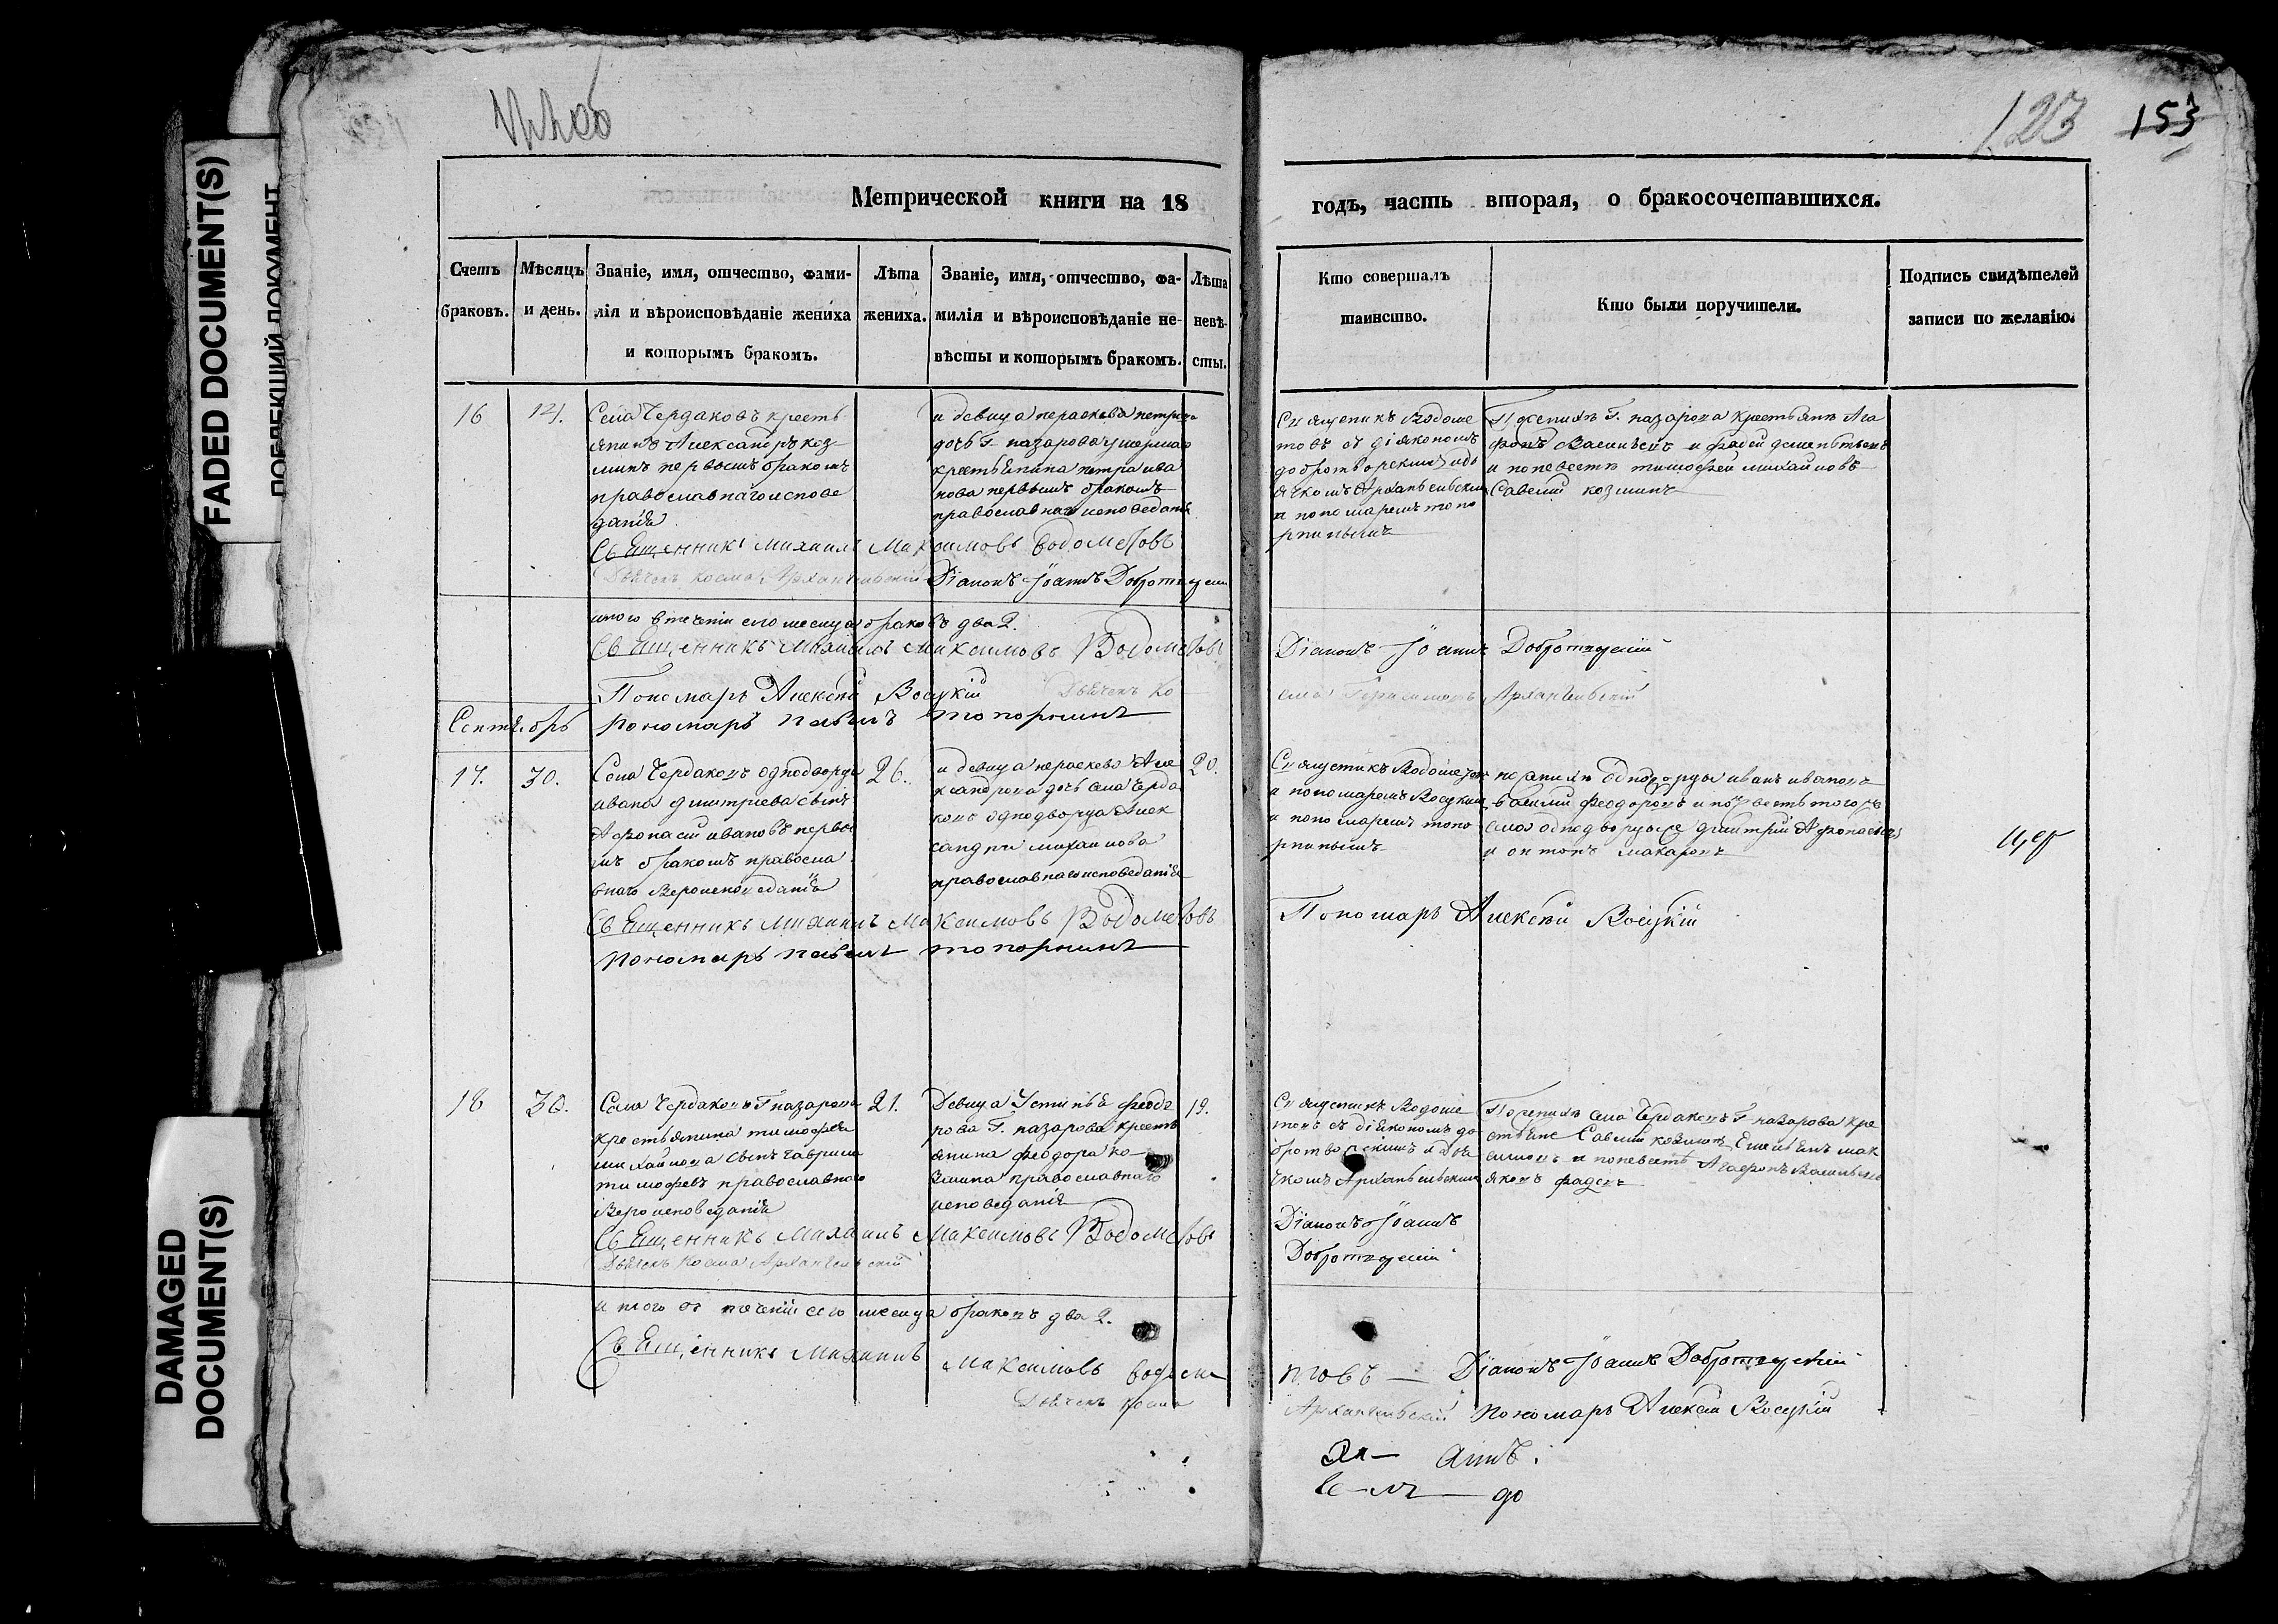 123 153
FADED DOCUMENT(S)
DAMAGED
DOCUMENT(S)
Метрической книги на 18 годъ, часть вторая, о бракосочетавшихся.
Счетъ
браковъ.
Мѣсяцъ
и день.
Званіе, имя, отчество, фами-
лія и вѣроисповѣданіе жениха
и которымъ бракомъ.
Лѣта
жениха.
Званіе, имя, отчество, фа-
милія и вѣроисповѣданіе не-
вѣсты и которымъ бракомъ.
Лѣта
невѣ-
сты.
Кто совершалъ
таинство.
Кто были поручители.
Подпись свидѣтелей
записи по желанію.
16
Села Чердаковъ кресть
янинъ Александръ коз
минъ первымъ бракомъ
православнаго испове
данія
и девица пераскева петрова
дочь Г. назарова умершаго
крестьянина петра ива
нова первымъ бракомъ
православнаго исповеданія
Священникъ Водоме
товъ съ діякономъ
добротворскимъ и дь
ячкомъ Архангельскимъ
и пономаремъ топо
рнинымъ
По женихѣ Г. назарова крестьяне Ага
фонъ Васильевъ и фадей дементьевъ
и по невесте тимофей михайловъ
Савелий козминъ
Священникъ Михаилъ Максимовъ Водометовъ
Дьячекъ Косма Архангельскій Діаконъ Іоаннъ Добротворскій
итого в течении сего месяца браковъ два 2.
Священникъ Михаилъ Максимовъ Водометовъ Діаконъ Іоаннъ Добротворскій
Пономарь Алексей Восуцкій Дьячекъ Ко
Архангельскій
Сентябрь Пономарь павелъ топорнинъ
17. 30.
Села Чердаковъ однодворца
ивана дмитриева сынъ
Афонасий ивановъ первы
мъ бракомъ правосла
внаго вероисповедания
26.
и девица пераскева Але
ксандрова дочь села Черда
ковъ однодворца Алек
сандра михайлова
православнаго исповеданія
20.
Священникъ Водометовъ
и пономаремъ
и пономаремъ топо
рнинымъ
по женихѣ однодворцы иванъ ивановъ
василий феодоровъ и по невесте того жъ
села однодворцы дмитрий Афонасьевъ
и онтонъ макаровъ
Священникъ Михаилъ Максимовъ Водометовъ Пономарь Алексей
Пономарь павелъ топорнинъ
18 30.
Села Чердаковъ Г назарова
крестьянина тимофея
михайлова сынъ гаврила
тимофевъ православнаго
вероисповеданія
21.
Девица Устинья феодо
рова Г. назарова кресть
янина феодора ко
змина православнаго
исповеданія
19.
Священникъ Водоме
товъ съ діякономъ до
бротворскимъ и дья
чкомъ Архангельскимъ
Діаконъ Іоаннъ
Добротворскій
По женихѣ села Чердаковъ Г. назарова кре
стьяне Савелий козминъ Емельянъ мак
симовъ и по невесте Агафонъ Васильевъ
Священникъ Михаилъ Максимовъ Водометовъ
Дьячекъ Косма Архангельскій
итого въ течении сего месяца браковъ два 2.
Священникъ Михаилъ Максимовъ Водоме
товъ — Діаконъ Іоаннъ Добротворскій
Дьячекъ Косма Архангельскій Пономарь Алексей